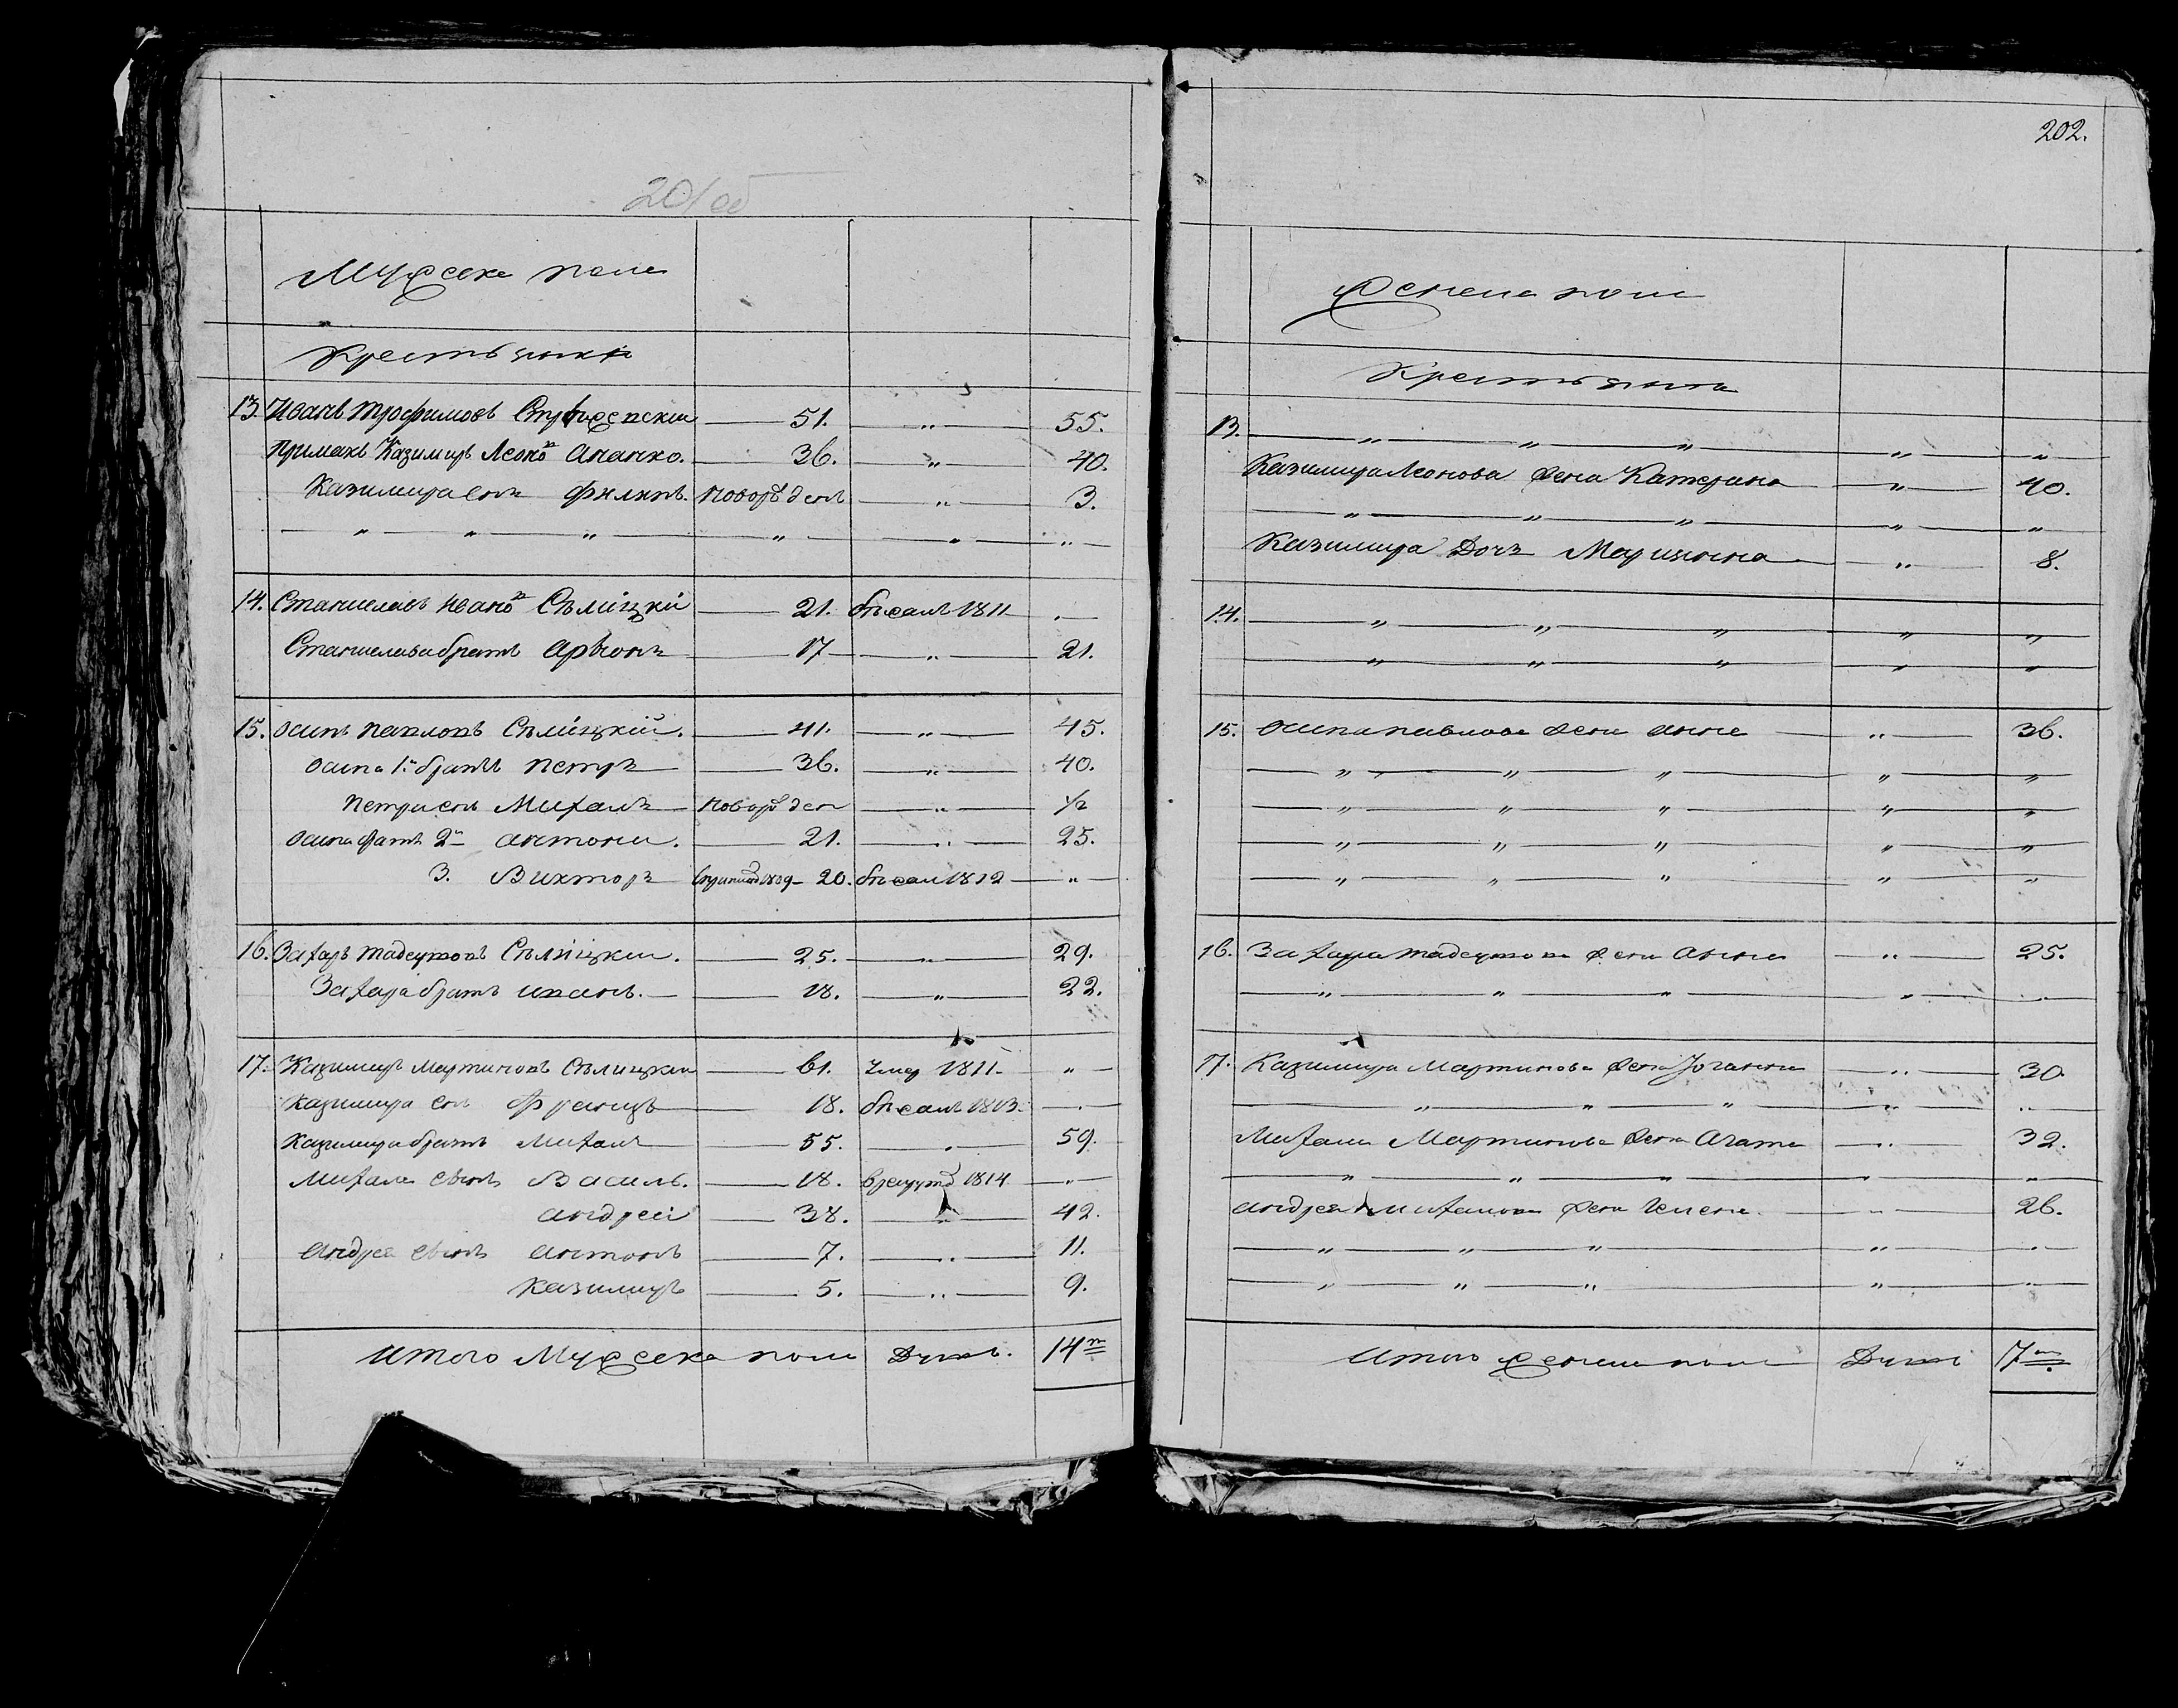 201 об
Мужеска пола
Крестьяне
13. Иванъ Трофимовъ — 51. — „ — 55.
Примакъ Казимиръ Леонов Ананко. — 36. — „ — 40.
Казимира сынъ Филипъ. новорожден — „ — 3.
— „ — „ — „ — „ — „ — „ —
14. Станиславъ Иванов Сѣлицкій — 21. бѣжалъ 1811 —
Станислава братъ — 17 — „ — 21.
15. Осипъ Павловъ Сѣлицкій. — 41. — „ — 45.
Осипа 1й братъ Петръ — 36. — „ — 40.
Петра сынъ Михалъ — новорожден — „ — 1/2
Осипа братъ 2й Антони. — 21. — „ — 25.
3. Викторъ — 20. бѣжалъ 1812 — „ —
16. Захаръ Тадеушовъ Сѣлицкій. — 25. — „ — 29.
Захара братъ Иванъ. — 18. — „ — 22.
17. Казимиръ Мартиновъ Сѣлицкій — 61. Умер 1811 — „ —
Казимира сынъ Францъ — 18. бѣжалъ 1813 — „ —
Казимира братъ Михалъ — 55. — „ — 59.
Михала сынъ Василь. — 18. в рекруты 1814 — „ —
Андрей — 38. — „ — 42.
Андрея сынъ Антонъ — 7. — „ — 11.
Казимиръ — 5. — „ — 9.
Итого Мужеска пола Душъ. 14ть
202.
Женска пола
Крестьяне
13. — „ — „ — „ — „ — „
Казимира Леонова жена Катерина — „ — 40.
— „ — „ — „ — „ — „
Казимира Дочь Марианна — „ — 8.
14. — „ — „ — „ — „ — „
— „ — „ — „ — „ — „
15. Осипа Павлова жена Анна — „ — 36.
— „ — „ — „ — „ — „
— „ — „ — „ — „ — „
— „ — „ — „ — „ — „
— „ — „ — „ — „ — „
16. Захара Тадеушова жена Анна — „ — 25.
— „ — „ — „ — „ — „
17. Казимира Мартинова жена Іоганна — „ — 30.
— „ — „ — „ — „ — „
Михала Мартинова жена Агата — „ — 32.
— „ — „ — „ — „ — „
Андрея Михалова жена Елена — „ — 26.
— „ — „ — „ — „ — „
— „ — „ — „ — „ — „
Итого Женска пола Душъ 7мь